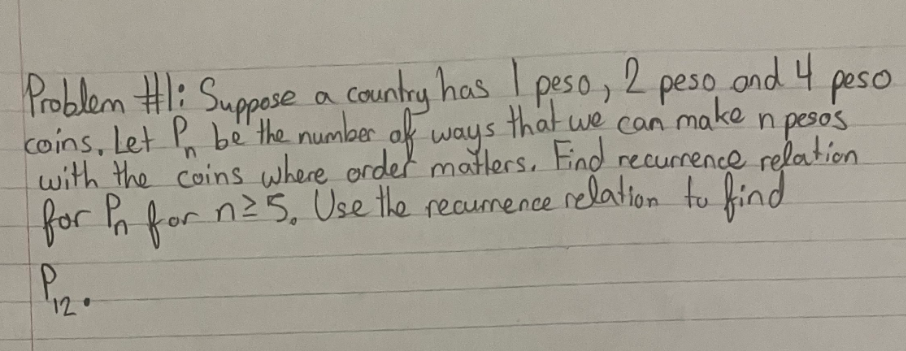 Problem #1: Suppose a country has 1 peso, 2 peso and 4 peso
coins. Let Pₙ be the number of ways that we can make n pesos
with the coins where order matters. Find recurrence relation
for Pₙ for n≥5. Use the recurrence relation to find
P₁₂.